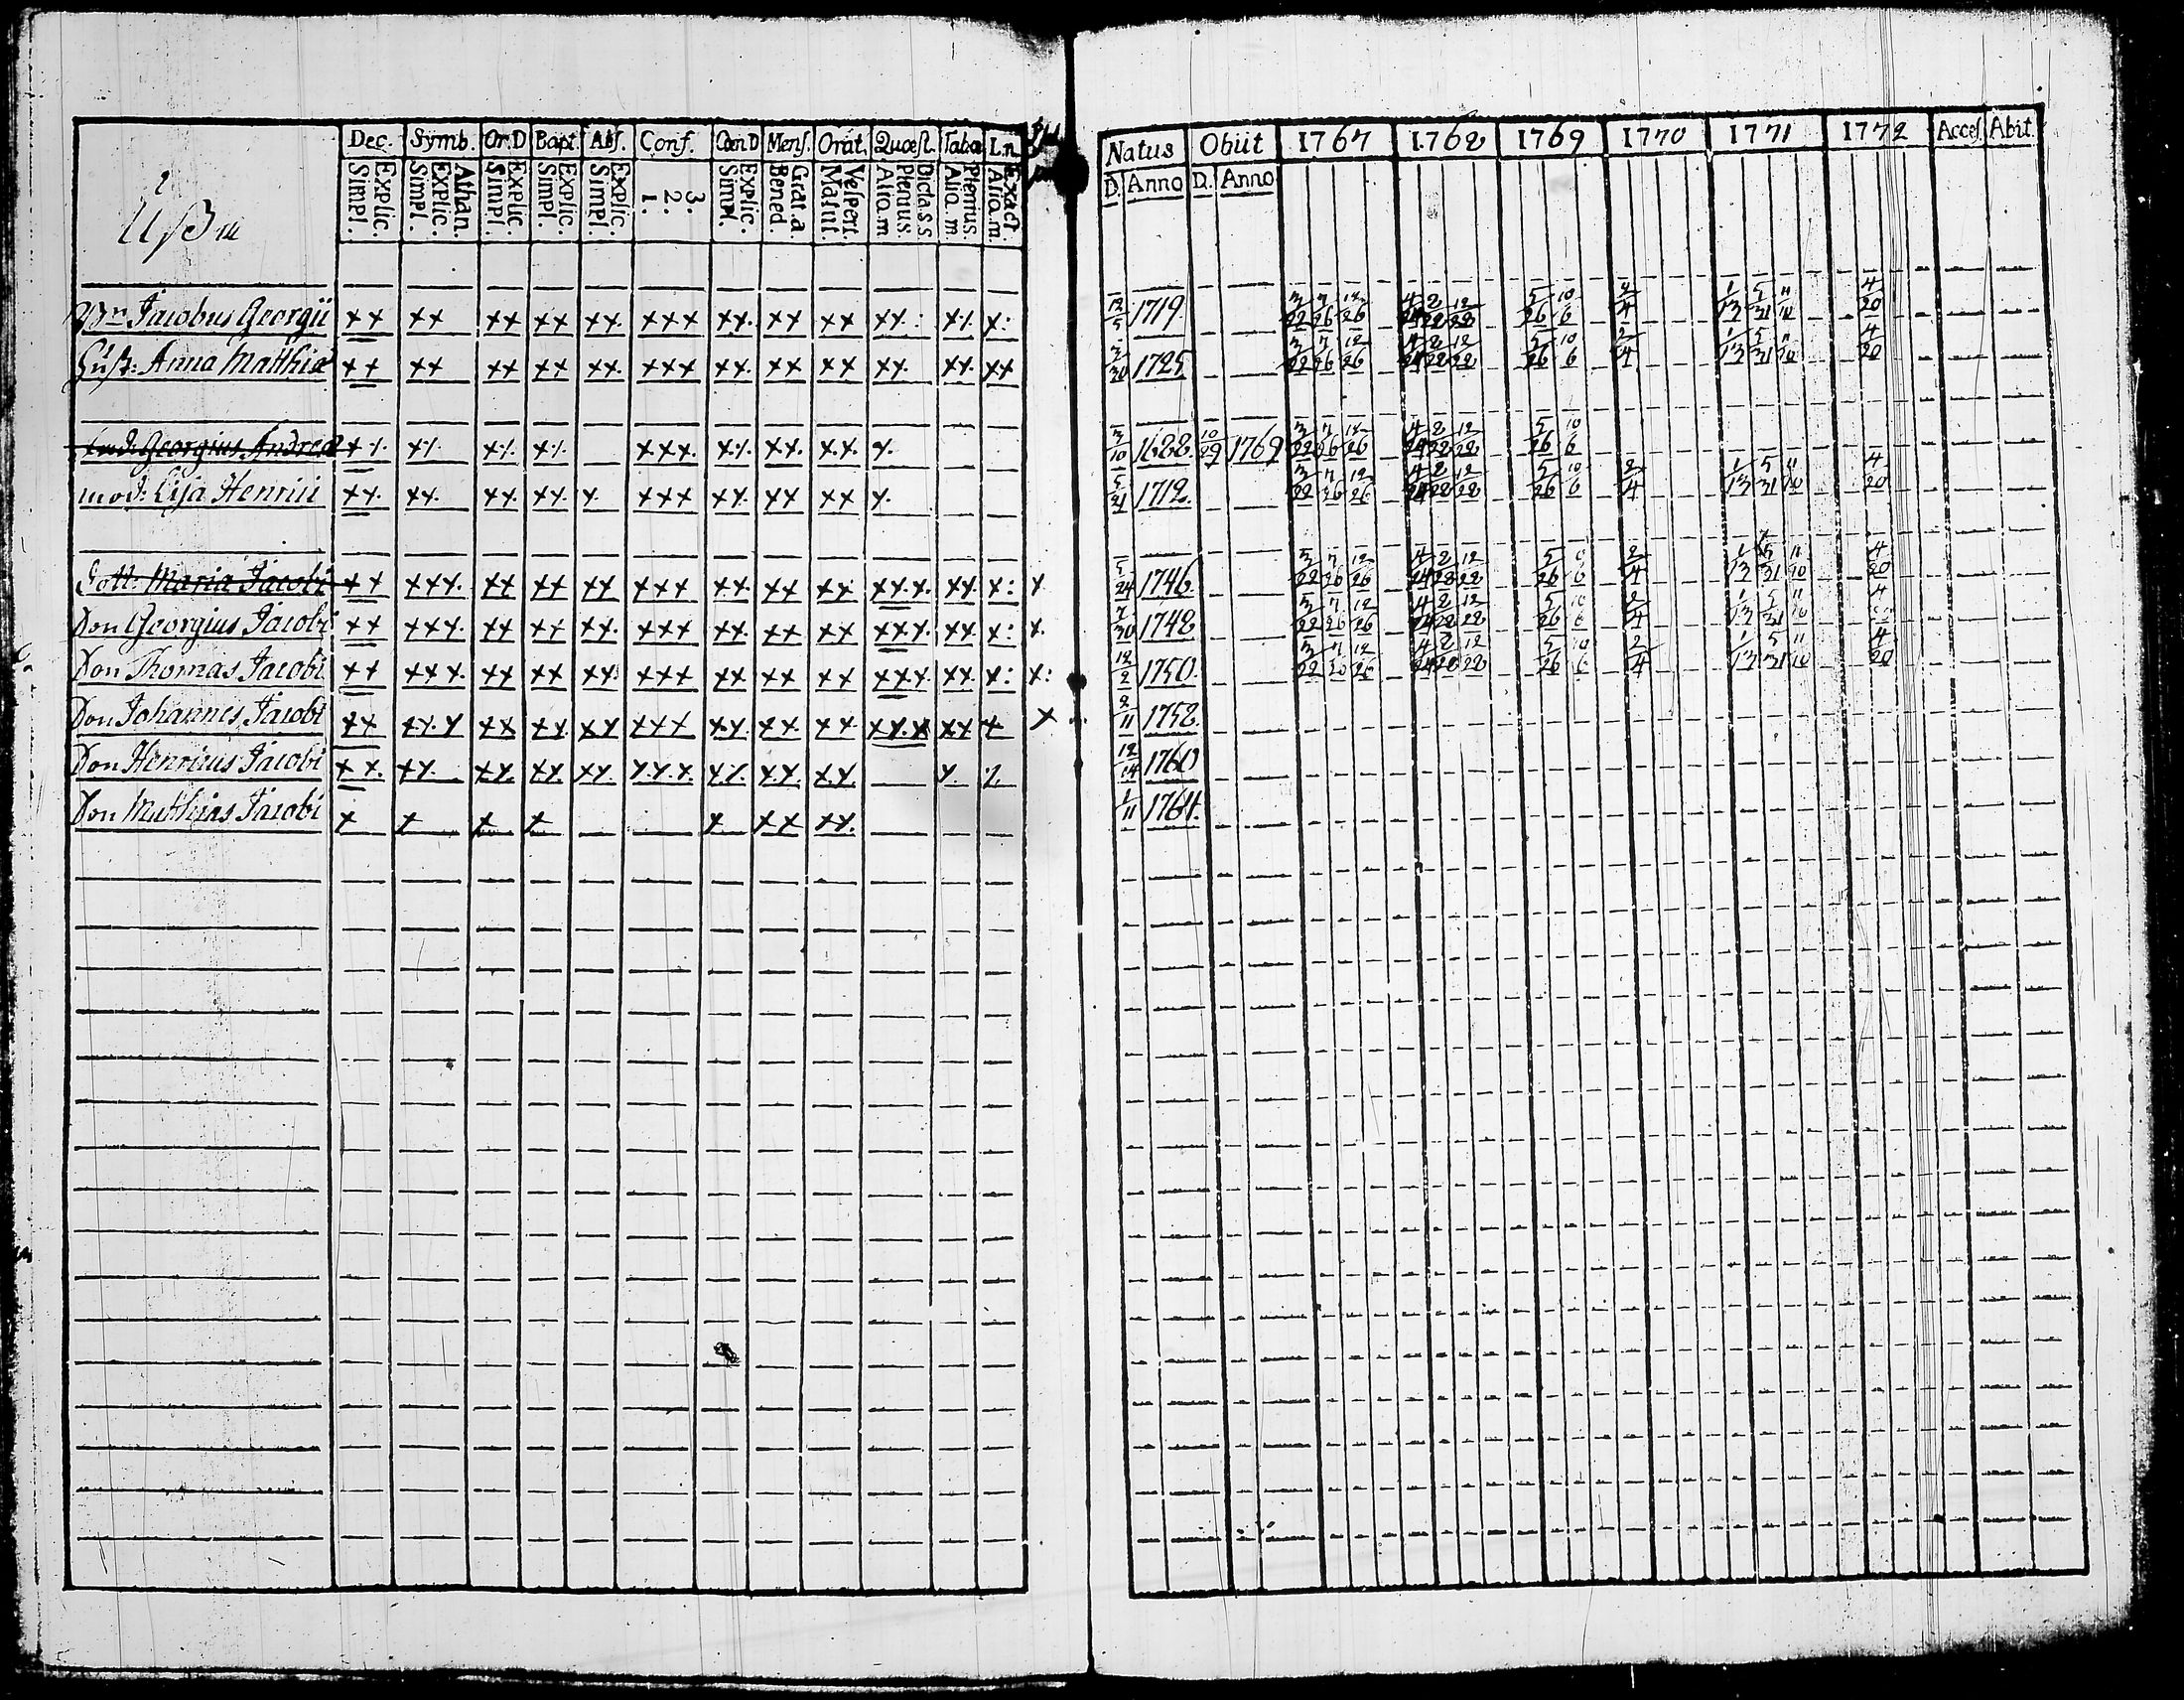 Dec. Symb. Or.D Bapt. Abs. Conf. Cœn D Mens. Orat. Quæst. Taba L.n.
Explic. Simpl. Athan. Explic. Simpl. Explic. Simpl. Explic. Simpl. Explic. Simpl. 3. 2. 1. Explic. Simpl. Grat.a. Bened. Vespert. Matut. Dicta.s.s. Plenius. Aliq.m. Plenius. Aliq.m. Exact. Aliq.m.
Natus Obiit 1767 1768 1769 1770 1771 1772 Acces. Abit.
D. Anno D. Anno
Jacobus Georgii xx xx xx xx xx. xxx xx. xx xx xx.: x: 12/5 1719 3/22 7/26 12/26 4/24 8/28 12/28 5/26 10/6 2/4 1/13 5/31 11/10 4/20
Anna Matthiæ xx xx xx xx xx. xxx xx. xx xx xx. xx. xx 1725 3/22 7/26 12/26 4/24 8/28 12/28 5/26 10/6 2/4 1/13 5/31 11/10 4/20
Georgius Andreæ xxx. 3/10 1688 10/29 1769 3/22 7/26 12/26 4/24 8/28 12/28 5/26 10/6
mod: Lisa Henrici xx. xx. xx. xx. x. xxx xx. xx xx x. 5/21 1712. 3/22 7/26 12/26 4/24 8/28 12/28 5/26 10/6 2/4 1/13 5/31 11/10 4/20
Dott: Maria Jacobi xx xxx. xx xx xx xxx xx. xx xx. xx.x. xx. x: x 5/24 1746. 3/22 7/26 12/26 4/24 8/28 12/28 5/26 2/4 1/13 5/31 11/10 4/20
Son Georgius Jacobi xx xxx. xx xx xx. xxx xx. xx xx xxx. xx. x: x. 7/30 1748 3/22 7/26 12/26 4/24 8/28 12/28 5/26 10/6 2/4 1/13 5/31 11/10
Son Thomas Jacobi xx xxx. xx xx xx. xxx xx xx xx xxx. xx. x: x: 12/2 1750. 3/22 12/26 4/24 8/28 12/28 5/26 10/6 2/4 1/13 5/31 11/10 4/20
Son Johannes Jacobi xx xx.x xx xx. xx xxx xx. xx. xx xx.x xx x x 2/11 1758.
Son Henricus Jacobi xx. xx. xx. xx. xx. x.x.x. x.x. x.x. x.x. x. 12/14 1760
Son Matthias Jacobi x x x x x xx xx. 1/11 1764.